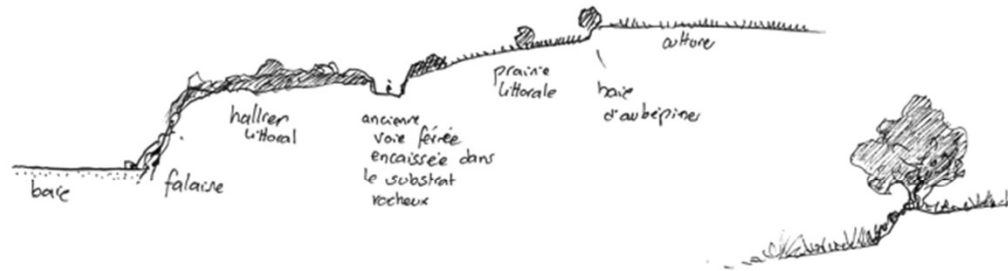 baie
falaise
hallier
littoral
ancienne
voie ferrée
encaissée dans
le substrat
rocheux
prairie
littorale
haie
d'aubépines
culture